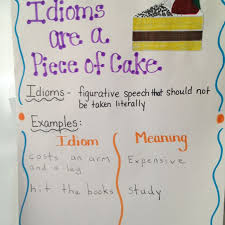 Idioms
are a
Piece of Cake.
Idioms- figurative speech that should not
be taken literally
Examples:
Idiom Meaning
costs an arm Expensive
and a leg
hit the books study